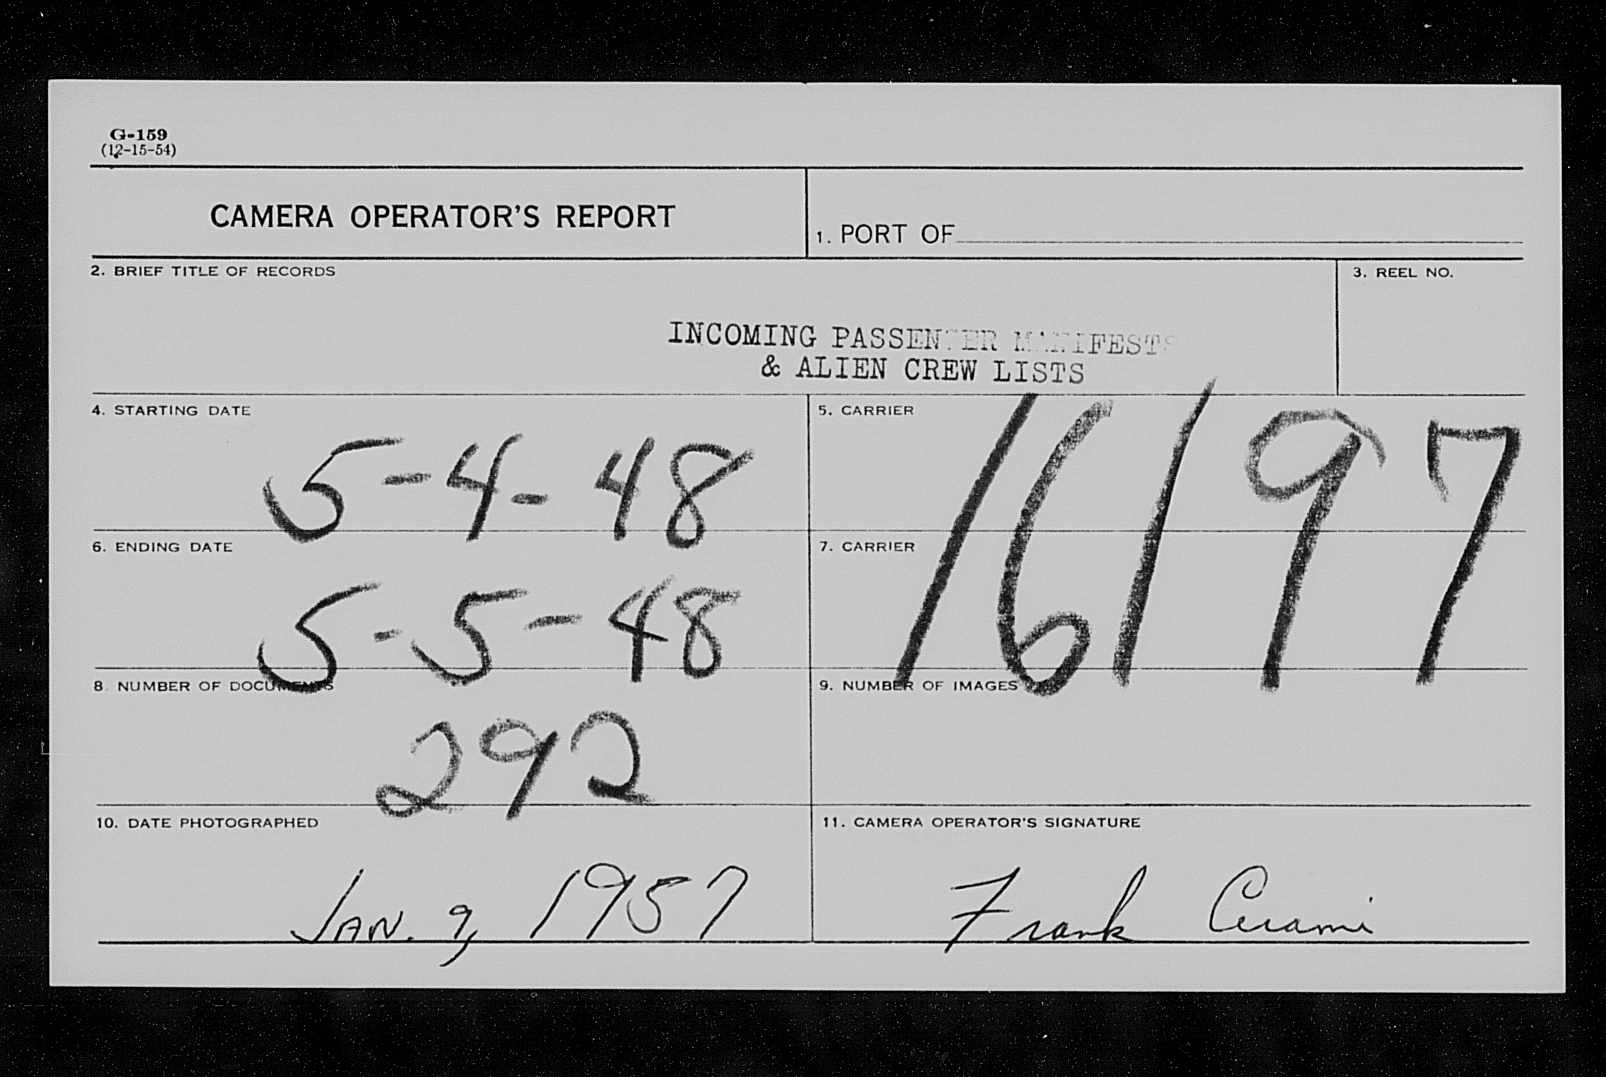 G-159
(12-15-54)
CAMERA OPERATOR'S REPORT
1. PORT OF
2. BRIEF TITLE OF RECORDS
3. REEL NO.
INCOMING PASSENGER MANIFESTS
& ALIEN CREW LISTS
4. STARTING DATE
5-4-48
5. CARRIER
16197
6. ENDING DATE
5-5-48
7. CARRIER
8. NUMBER OF DOCUMENTS
292
9. NUMBER OF IMAGES
10. DATE PHOTOGRAPHED
JAN. 9, 1957
11. CAMERA OPERATOR'S SIGNATURE
Frank Cerami